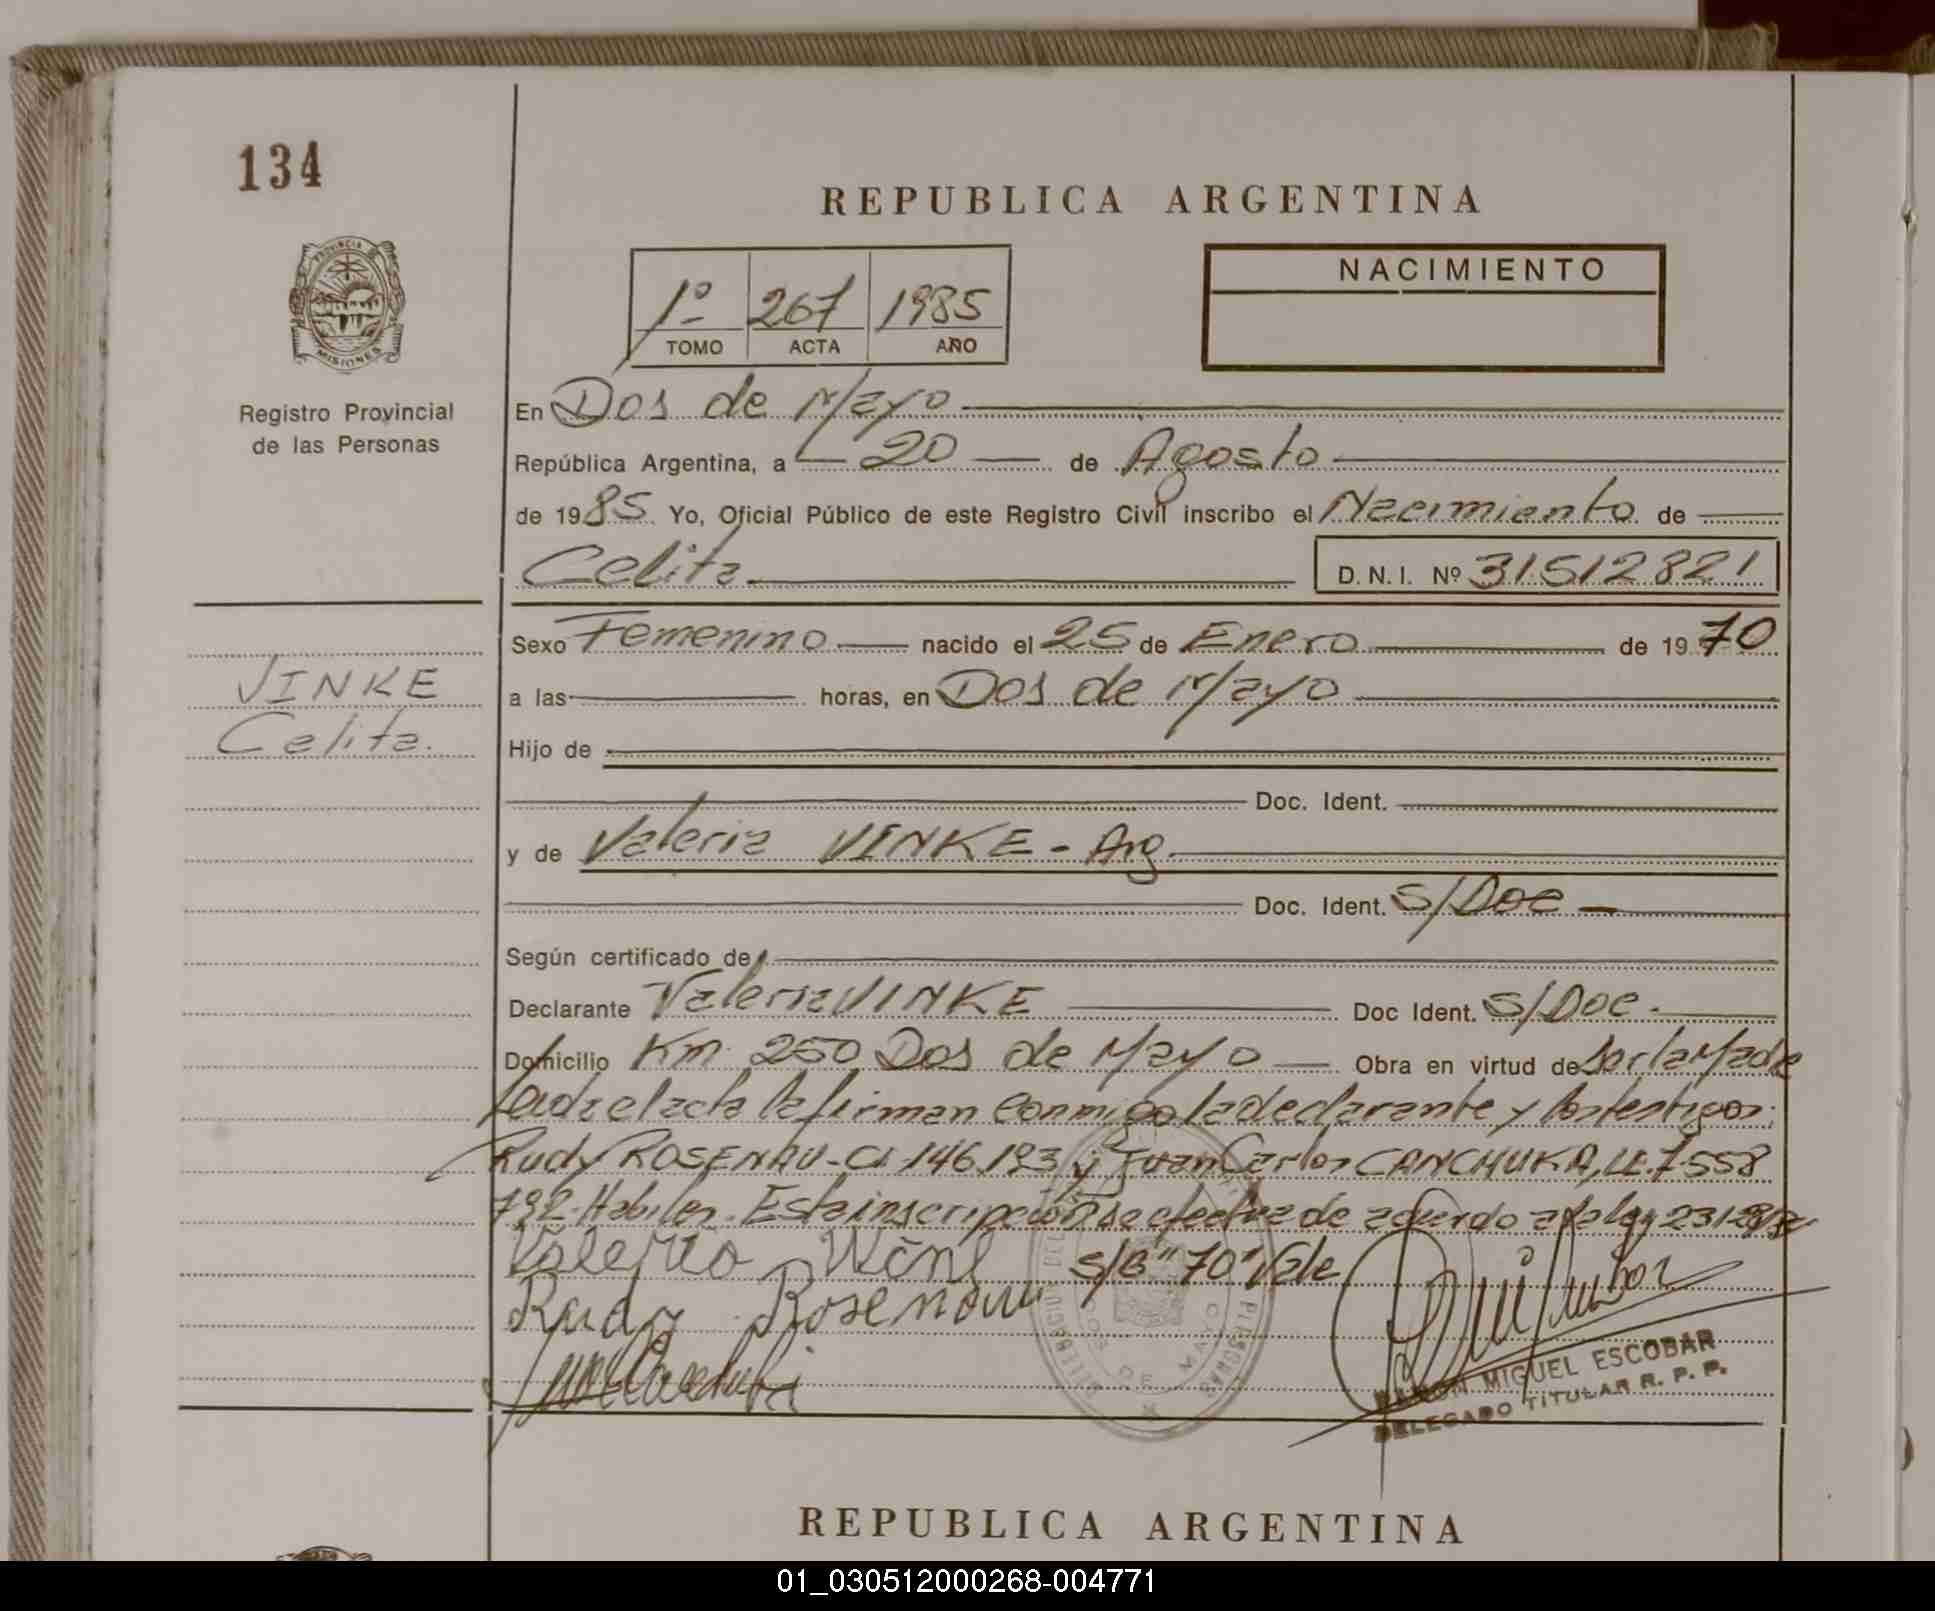 134
REPUBLICA ARGENTINA
PROVINCIA DE
MISIONES
Registro Provincial
de las Personas
1º 267 1985
TOMO ACTA AÑO
NACIMIENTO
En Dos de Mayo
República Argentina, a 20 de Agosto
de 1985 Yo, Oficial Público de este Registro Civil inscribo el Nacimiento de
Celita D.N.I. Nº 31512821
VINKE
Celita.
Sexo Femenino nacido el 25 de Enero de 1970
a las horas, en Dos de Mayo
Hijo de
Doc. Ident.
y de Valeria VINKE - Arg.
Doc. Ident. S/Doc
Según certificado de
Declarante Valeria VINKE Doc Ident. S/Doc.
Domicilio Km. 250 Dos de Mayo Obra en virtud de Ser la Madre
Leida el acta la firman conmigo la declarante y los testigos:
Rudy ROSENAU - CI 146.193 y Juan Carlos CANCHUKA, LE. 7.558
792. Habiles. Esta inscripcion se efectua de acuerdo a la ley
S/B "70" Vale
Valeria
Rudy Rosenau
DELEGACION DEL
PERSONAS
DOS DE MAYO
RAMON MIGUEL ESCOBAR
DELEGADO TITULAR R. P. P.
REPUBLICA ARGENTINA
01_030512000268-004771